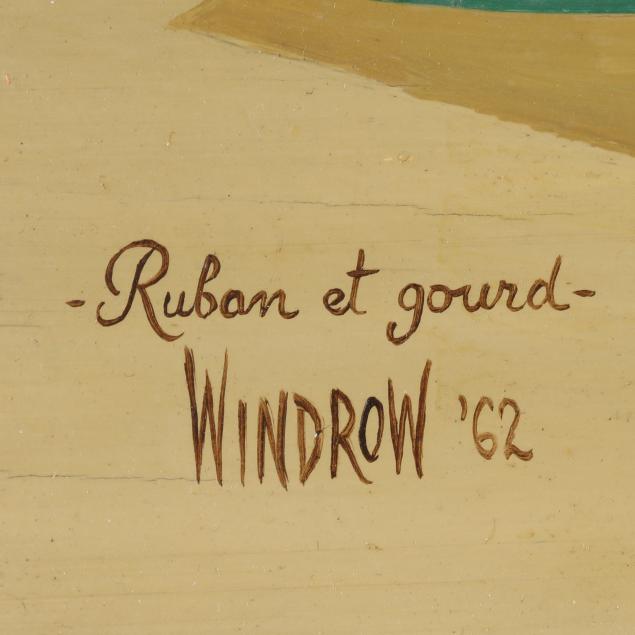 - Ruban et gourd -
WINDROW '62